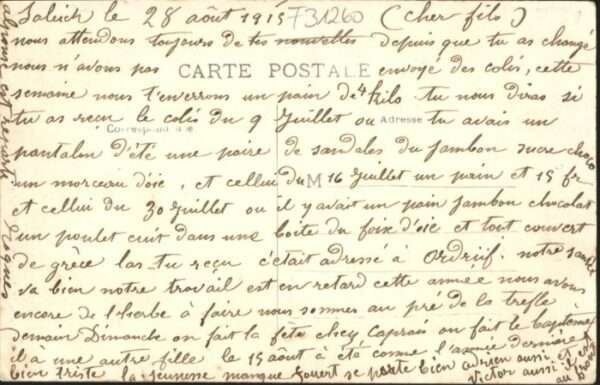 Saluch le 28 août 1915 731260 (cher fils)
nous attendons toujours de tes nouvelles depuis que tu as changé
nous n'avons pas envoyé des colis, cette
CARTE POSTALE
semaine nous t'enverrons un pain de 4 kilo tu nous diras si
tu as reçu le colis du 9 juillet ou tu avais un
Correspondance Adresse
pantalon d'été une paire de sandales du jambon sucre choco
un morceau d'oie, et cellui du 16 juillet un pain et 15 fr
M
et cellui du 30 juillet ou il y avait un pain jambon chocolat
un poulet cuit dans une boite du foix d'oie et tout couvert
de grèce las tu reçu c'était adressé a Ordrüf. notre santé
va bien notre travail est en retard cette année nous avons
encore de l'herbe à faire nous sommes au pré de la trefle
demain Dimanche on fait la fete chez Caprais on fait le baptême
il a une autre fille le 15 août à été comme l'année derniere
bien triste la jeunesse manque se porte bien adrien aussi et
victor aussi il est
au